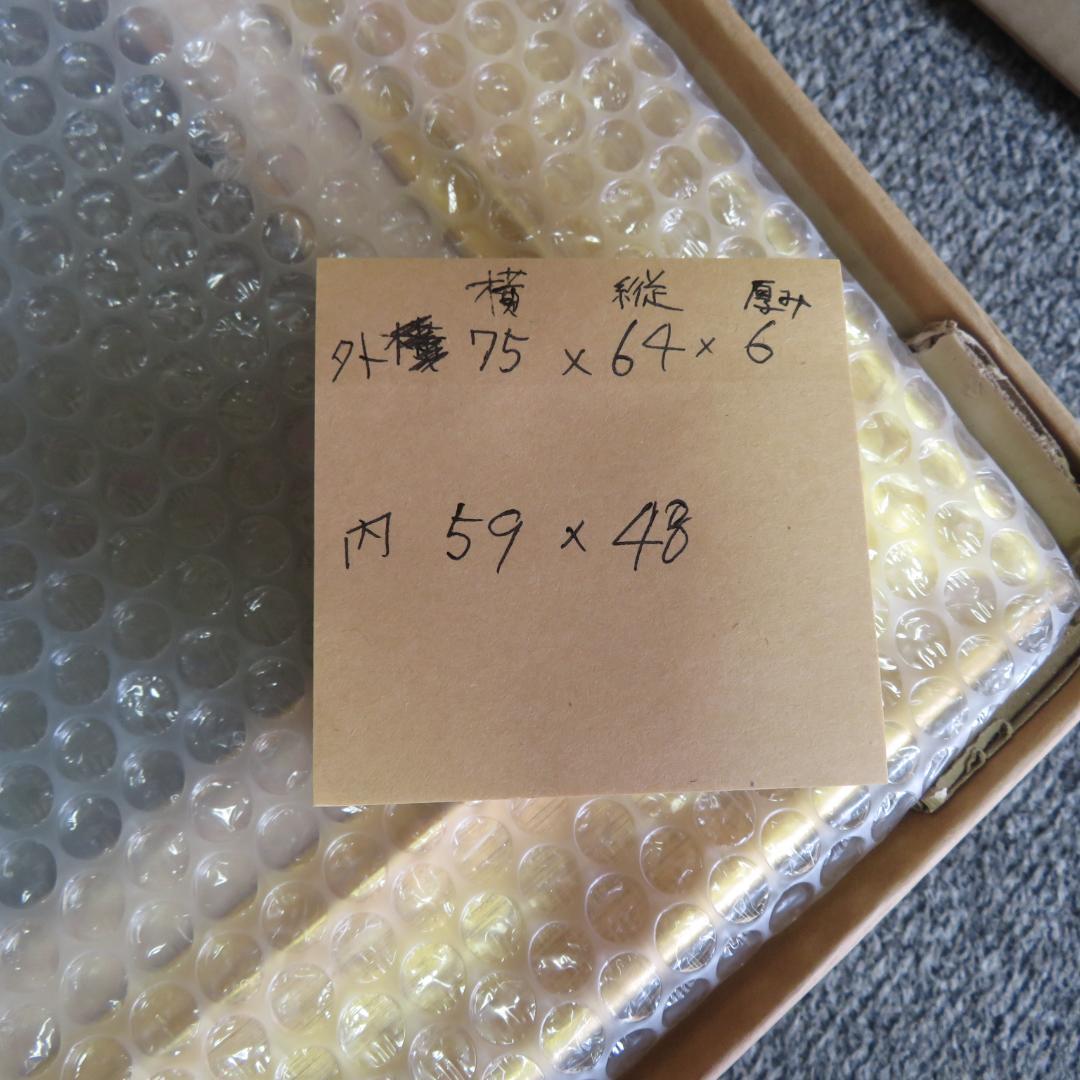 横 縦 厚み
外 75 x 64 x 6
内 59 x 48